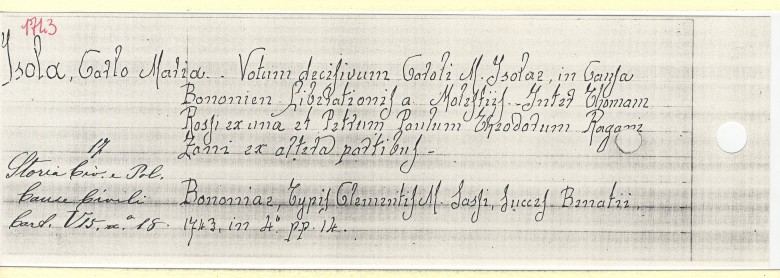 1743
Isola, Carlo Maria. - Votum decisivum Caroli M. Isolae, in Causa
Bononien Liberationis a Molestiis - Inter Thomam
Rossi ex una et Petrum Paulum Theodorum Ragaz
zoni ex altera partibus -
17
Storia Civ. e Pol.
Cause Civili
Cart. V75, n.º 18
Bononiae, Typis Clementis M. Sassi, Succes. Benatii.
1743, in 4.º pp. 14.